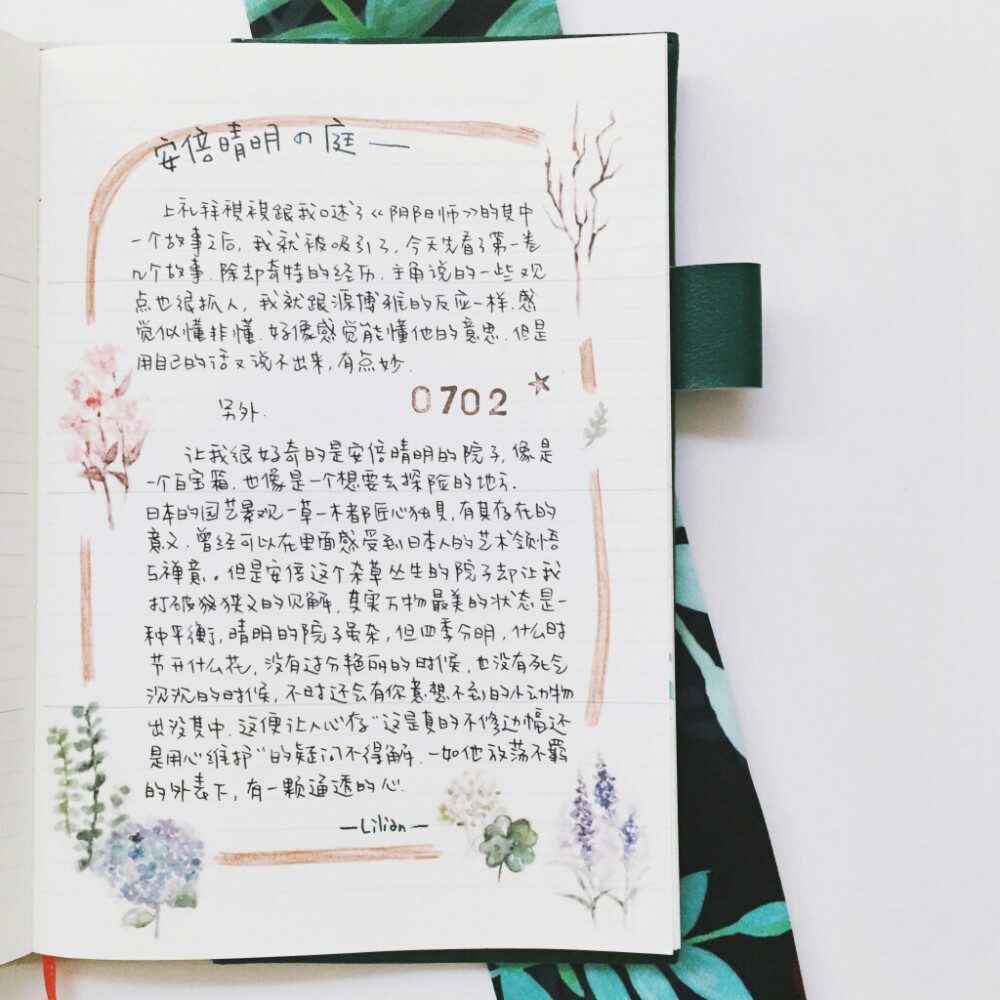 安倍晴明の庭—
上礼拜祺祺跟我口述了《阴阳师》的其中
一个故事之后，我就被吸引了，今天先看了第一卷
几个故事．除却奇特的经历．主角说的一些观
点也很抓人，我就跟源博雅的反应一样．感
觉似懂非懂．好像感觉能懂他的意思．但是
用自己的话又说不出来，有点妙．
0702
另外．
让我很好奇的是安倍晴明的院子，像是
一个百宝箱，也像是一个想要去探险的地方．
日本的园艺景观一草一木都匠心独具，有其存在的
意义．曾经可以在里面感受到日本人的艺术领悟
与禅意。但是安倍这个杂草丛生的院子却让我
打破狭义的见解，其实万物最美的状态是一
种平衡，晴明的院子虽杂，但四季分明，什么时
节开什么花，没有过分艳丽的时候，也没有死气
沉沉的时候，不时还会有你意想不到的小动物
出没其中．这便让人心存“这是真的不修边幅还
是用心维护”的疑问不得解．一如他放荡不羁
的外表下，有一颗通透的心．
—Lilian—